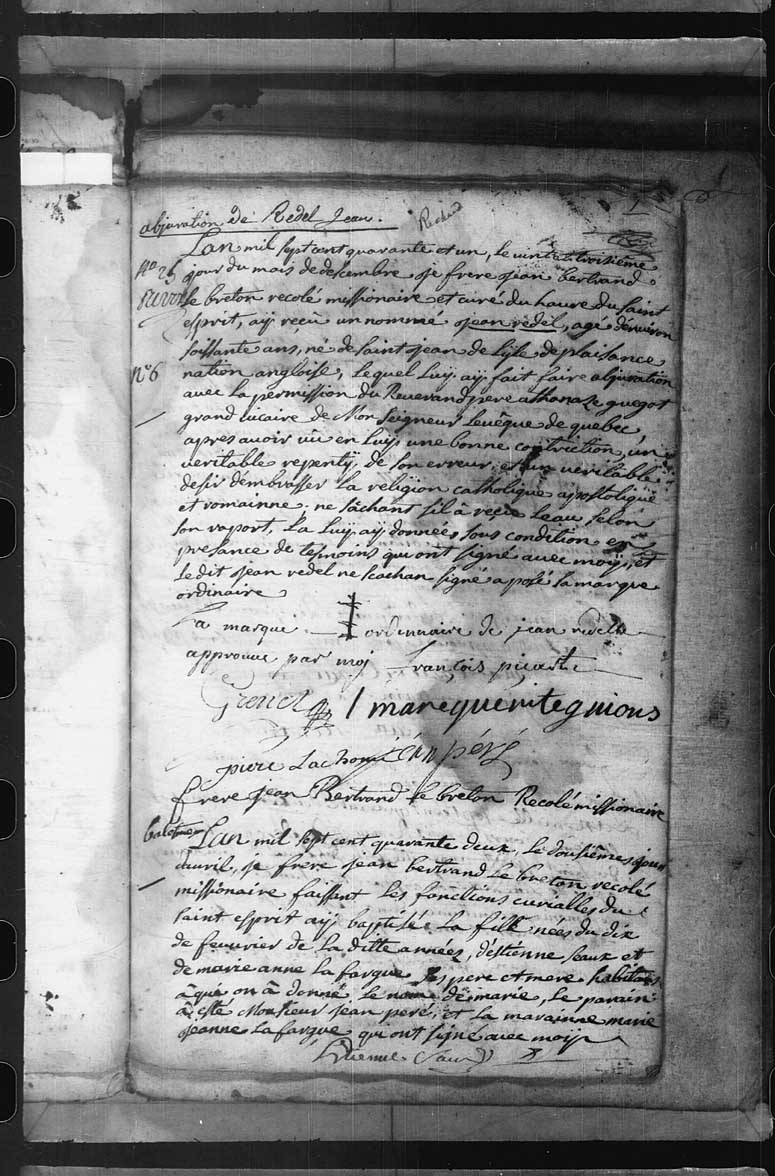 abjuration de Redel Jean.
Richard
1
Lan mil sept cent quarante et un, le vint troisième
No 25
jour du mais de descembre je frere jean bertrand
le breton recolé missionaire et curé du haure du saint
esprit, aÿ reçü un nommé jean redel, agé denuiron
soissante ans, né de saint jean de lisle de plaisance
n°6
nation angloise, lequel luy aÿ fait faire abjuration
avec la permission du Reuerand pere athanaze guegot
grand uicaire de Mon seigneur leuêque de quebec
apres auoir uû en luy une bonne contriction, un
ueritable repentÿ de son erreur, et un ueritable
desir dembrasser la religion catholique apostolique
et romainne; ne sâchant sil â reçüe leau selon
son raport, la luÿ aÿ donnée sous condition en
presance de tesmoins qui ont signé auec moÿ, et
ledit jean redel ne scachan signé a posé sa marque
ordinaire
La marque ordinnaire de jean redelle
approuue par moj François picart
Grenet 1 marequeritegnious
piere Lachou jean péré
frere jean Bertrand le breton Recolé missionaire
batême
Lan mil sept cent quarante deux, le dousiêmes jour
dauril, je frere jean bertrand le breton recolé
missionaire faissant les fonctions curialles du
saint esprit aÿ baptisé la fille nées du dix
de feuurier de la ditte années, d'éstienne saux et
de marie anne la fargue ses pere et mere habitans
âque on â donné le nom de marie, le parain
â esté Monsieur jean peré, et la marainne marie
jeanne la fargue qui ont signé auec moÿ
Etienne Saux